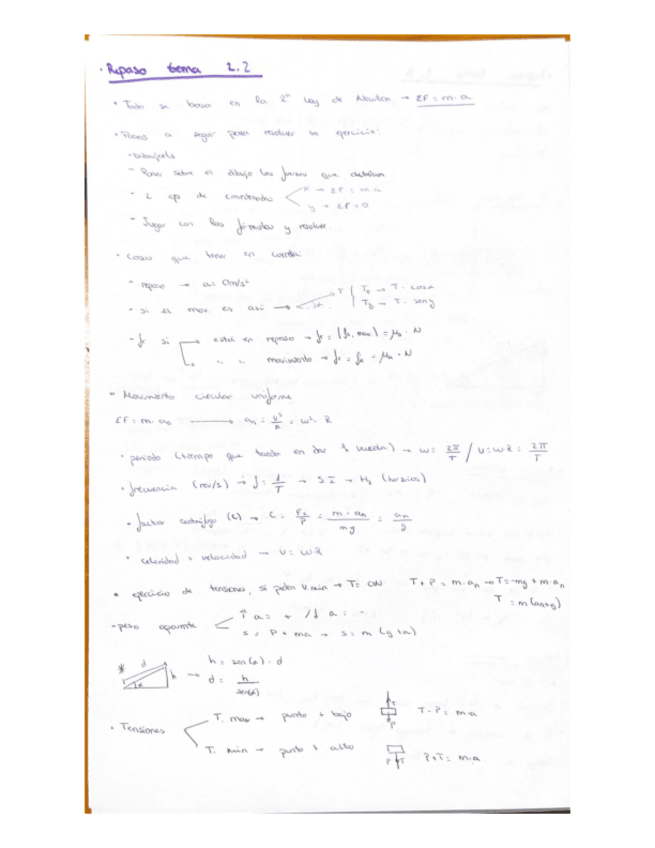 · Repaso tema 2.2
· Todo se basa en la 2ª ley de Newton → ΣF = m·a
· Pasos a seguir para resolver un ejercicio:
- Dibujarlo
- Poner sobre el dibujo las fuerzas que actúan
- 2 ejes de coordenadas x → ΣF = m·a
y → ΣF = 0
- Jugar con las fórmulas y resolver.
· Cosas que tener en cuenta:
- reposo → a = 0m/s²
- si el mov. es así → T α Tx → T · cosα
Ty → T · senα
- fr si está en reposo → fr = |fs, max| = μs · N
" " movimiento → fr = fk = μk · N
· Movimiento circular uniforme
ΣF = m·an → an = v²/R = ω² · R
· periodo (tiempo que tarda en dar 1 vuelta) → ω = 2π/T / v = ωR = 2π/T
· frecuencia (rev/s) → f = 1/T → SI → Hz (herzios)
· factor centrífugo (C) → C = Fc/P = m · an/mg = an/g
· celeridad = velocidad → v = ω·R
· ejercicio de tensiones, si piden v min → T = 0N T + P = m·an → T = -mg + m·an
T = m(an+g)
- peso aparente ↑ a = + / ↓ a = -
S = P + ma → S = m (g+a)
* d h α → h = sen(α) · d
d = h/sen(α)
· Tensiones T. max → punto + bajo T P T - P = m·a
T. min → punto + alto P T P+T = m·a